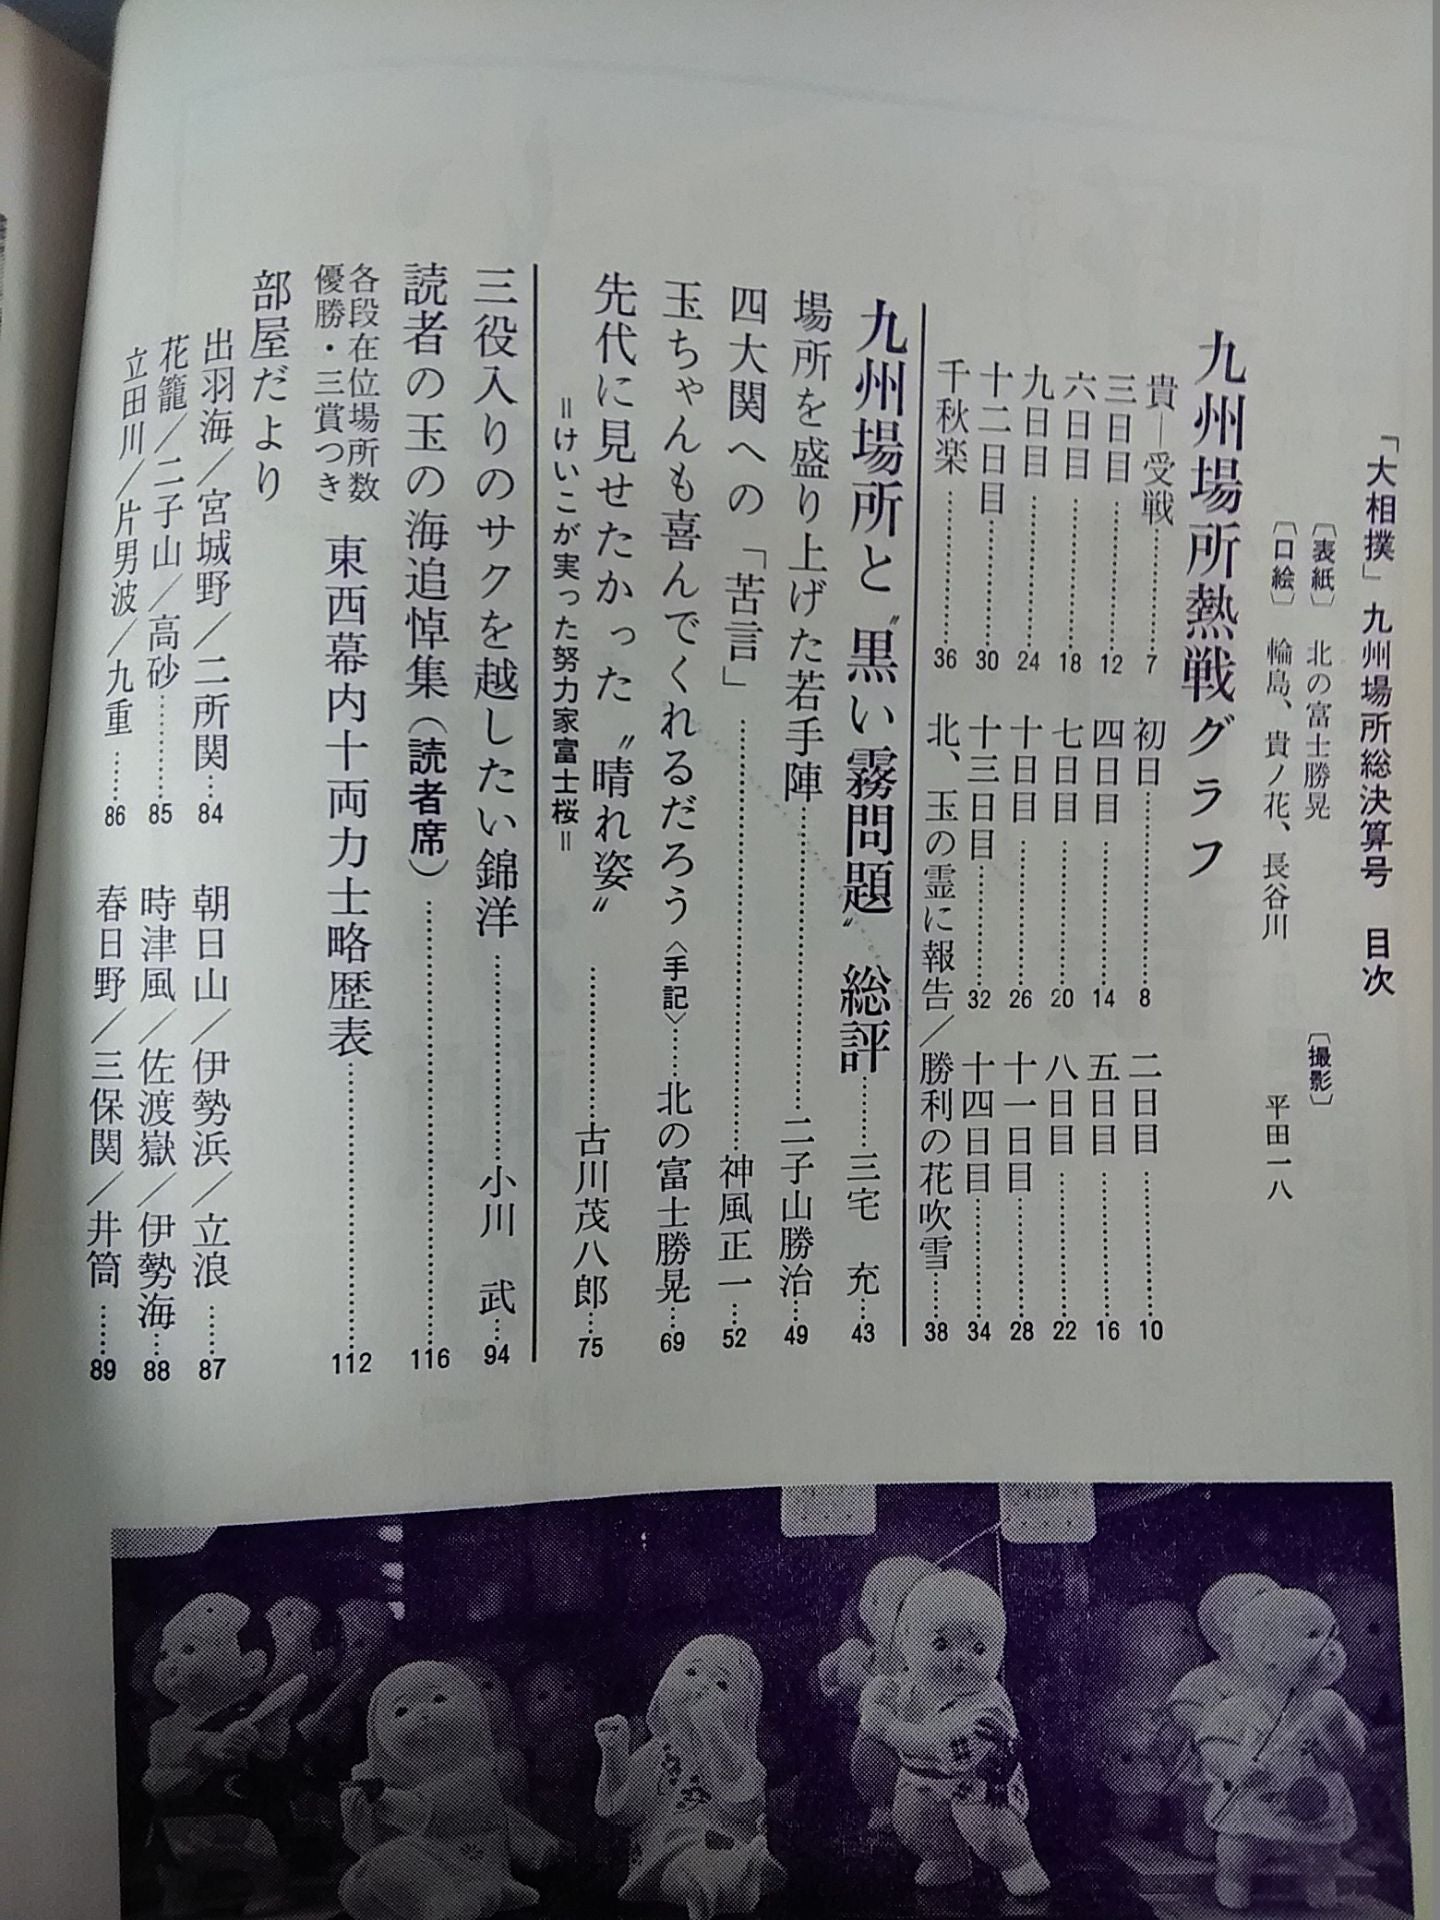 「大相撲」九州場所総決算号 目次
〔表紙〕 北の富士勝晃
〔口絵〕 輪島、貴ノ花、長谷川
〔撮影〕
平田一八
九州場所熱戦グラフ
貴―受戦……7 初日……8 二日目……10
三日目……12 四日目……14 五日目……16
六日目……18 七日目……20 八日目……22
九日目……24 十日目……26 十一日目……28
十二日目……30 十三日目……32 十四日目……34
千秋楽……36 北、玉の霊に報告／勝利の花吹雪……38
九州場所と〝黒い霧問題〟総評……三宅 充…43
場所を盛り上げた若手陣……二子山勝治…49
四大関への「苦言」……神風正一…52
玉ちゃんも喜んでくれるだろう〈手記〉……北の富士勝晃…69
先代に見せたかった〝晴れ姿〟……古川茂八郎…75
＝けいこが実った努力家富士桜＝
三役入りのサクを越したい錦洋……小川 武…94
読者の玉の海追悼集（読者席）……116
各段在位場所数
優勝・三賞つき 東西幕内十両力士略歴表……112
部屋だより
出羽海／宮城野／二所関…84 朝日山／伊勢浜／立浪……87
花籠／二子山／高砂……85 時津風／佐渡嶽／伊勢海…88
立田川／片男波／九重……86 春日野／三保関／井筒……89